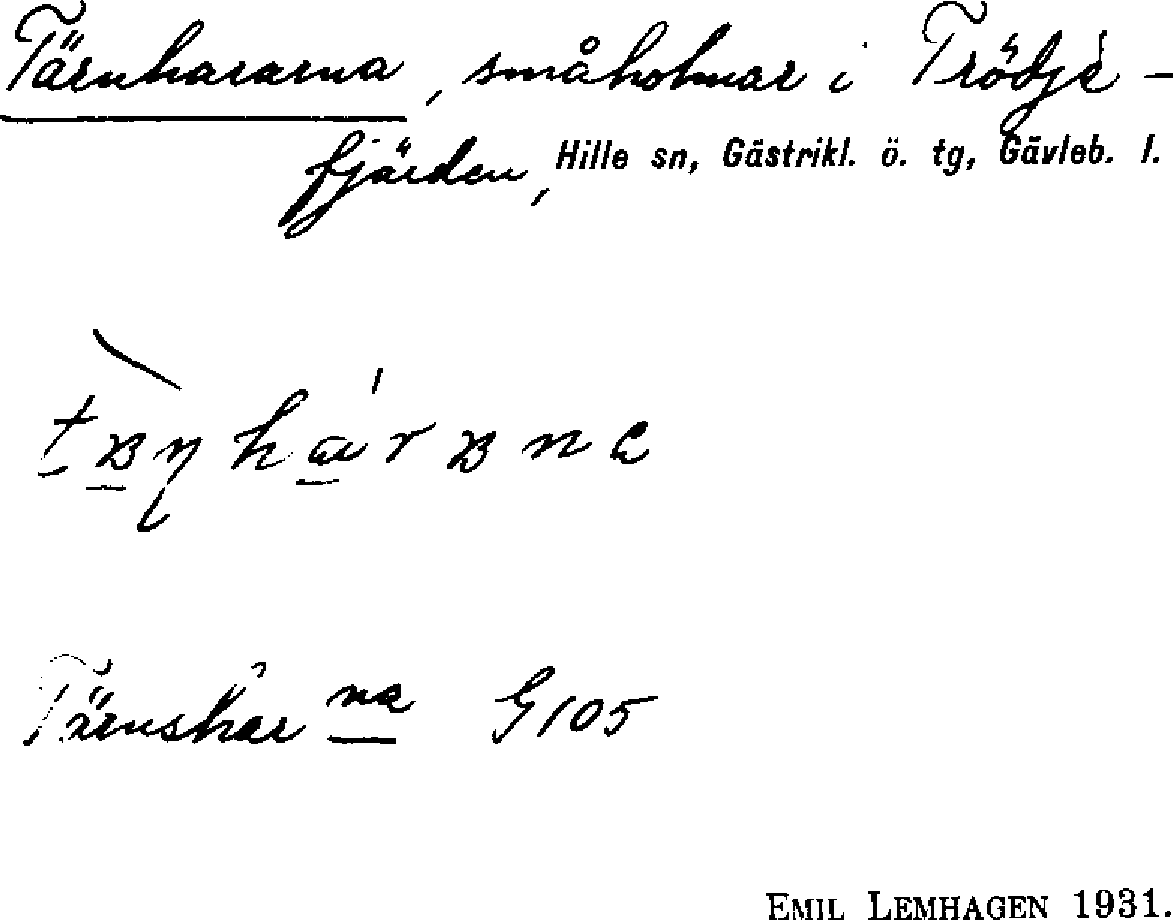 Tärnhararna, småholmar i Trödje-
fjärden, Hille sn, Gästrikl. ö. tg, Gävleb. l.
Tärnshar na G105
EMIL LEMHAGEN 1931.